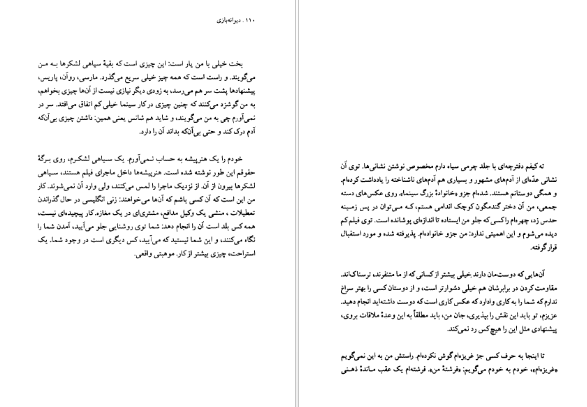 ۱۱۰ . دیوانه‌بازی
بخت خیلی با من یار است: این چیزی است که بقیهٔ سیاهی لشکرها به من
می‌گویند. و راست است که همه چیز خیلی سریع می‌گذرد. مارسی، روآن، پاریس،
پیشنهادها پشت سر هم می‌رسد، به زودی دیگر نیازی نیست از آن‌ها چیزی بخواهم،
به من گوشزد می‌کنند که چنین چیزی در کار سینما خیلی کم اتفاق می‌افتد. سر در
نمی‌آورم چی به من می‌گویند، و شاید هم شانس یعنی همین: داشتن چیزی بی‌آنکه
آدم درک کند و حتی بی‌آن‌که بداند آن را دارد.
خودم را یک هنرپیشه به حساب نمی‌آورم. یک سیاهی لشکرم، روی برگهٔ
حقوقم این طور نوشته شده است. هنرپیشه‌ها داخل ماجرای فیلم هستند، سیاهی
لشکرها بیرون از آن. از نزدیک ماجرا را لمس می‌کنند، ولی وارد آن نمی‌شوند. کار
من این است که آن کسی باشم که آن‌ها می‌خواهند: زنی انگلیسی در حال گذراندن
تعطیلات، منشی یک وکیل مدافع، مشتری‌ای در یک مغازه. کار پیچیده‌ای نیست،
همه کس بلد است آن را انجام دهد: شما توی روشنایی جلو می‌آیید، آمدن شما را
نگاه می‌کنند، و این شما نیستید که می‌آیید، کس دیگری است در وجود شما. یک
استراحت، چیزی بیشتر از کار. موهبتی واقعی.
ته کیفم دفترچه‌ای با جلد چرمی سیاه دارم مخصوص نوشتن نشانی‌ها. توی آن
نشانی عدّه‌ای از آدم‌های مشهور و بسیاری هم آدم‌های ناشناخته را یادداشت کرده‌ام.
و همگی دوستانم هستند. شده‌ام جزو «خانوادهٔ بزرگ سینما». روی عکس‌های دسته
جمعی، من آن دختر گندمگون کوچک اندامی هستم، که می‌توان در پس زمینه
حدس زد، چهره‌ام را کسی که جلو من ایستاده تا اندازه‌ای پوشانده است. توی فیلم کم
دیده می‌شوم و این اهمیتی ندارد: من جزو خانواده‌ام. پذیرفته شده و مورد استقبال
قرار گرفته.
آن‌هایی که دوست‌مان دارند خیلی بیشتر از کسانی که از ما متنفرند، ترسناک‌اند.
مقاومت کردن در برابرشان هم خیلی دشوارتر است، و از دوستان کسی را بهتر سراغ
ندارم که شما را به کاری وادارد که عکس کاری است که دوست داشته‌اید انجام دهید.
عزیزم، تو باید این نقش را بپذیری، جان من، باید مطلقاً به این وعدهٔ ملاقات بروی،
پیشنهادی مثل این را هیچ‌کس رد نمی‌کند.
تا اینجا به حرف کسی جز غریزه‌ام گوش نکرده‌ام. راستش من به این نمی‌گویم
«غریزه‌ام»، خودم به خودم می‌گویم: «فرشتهٔ من». فرشته‌ام یک عقب ماندهٔ ذهنی